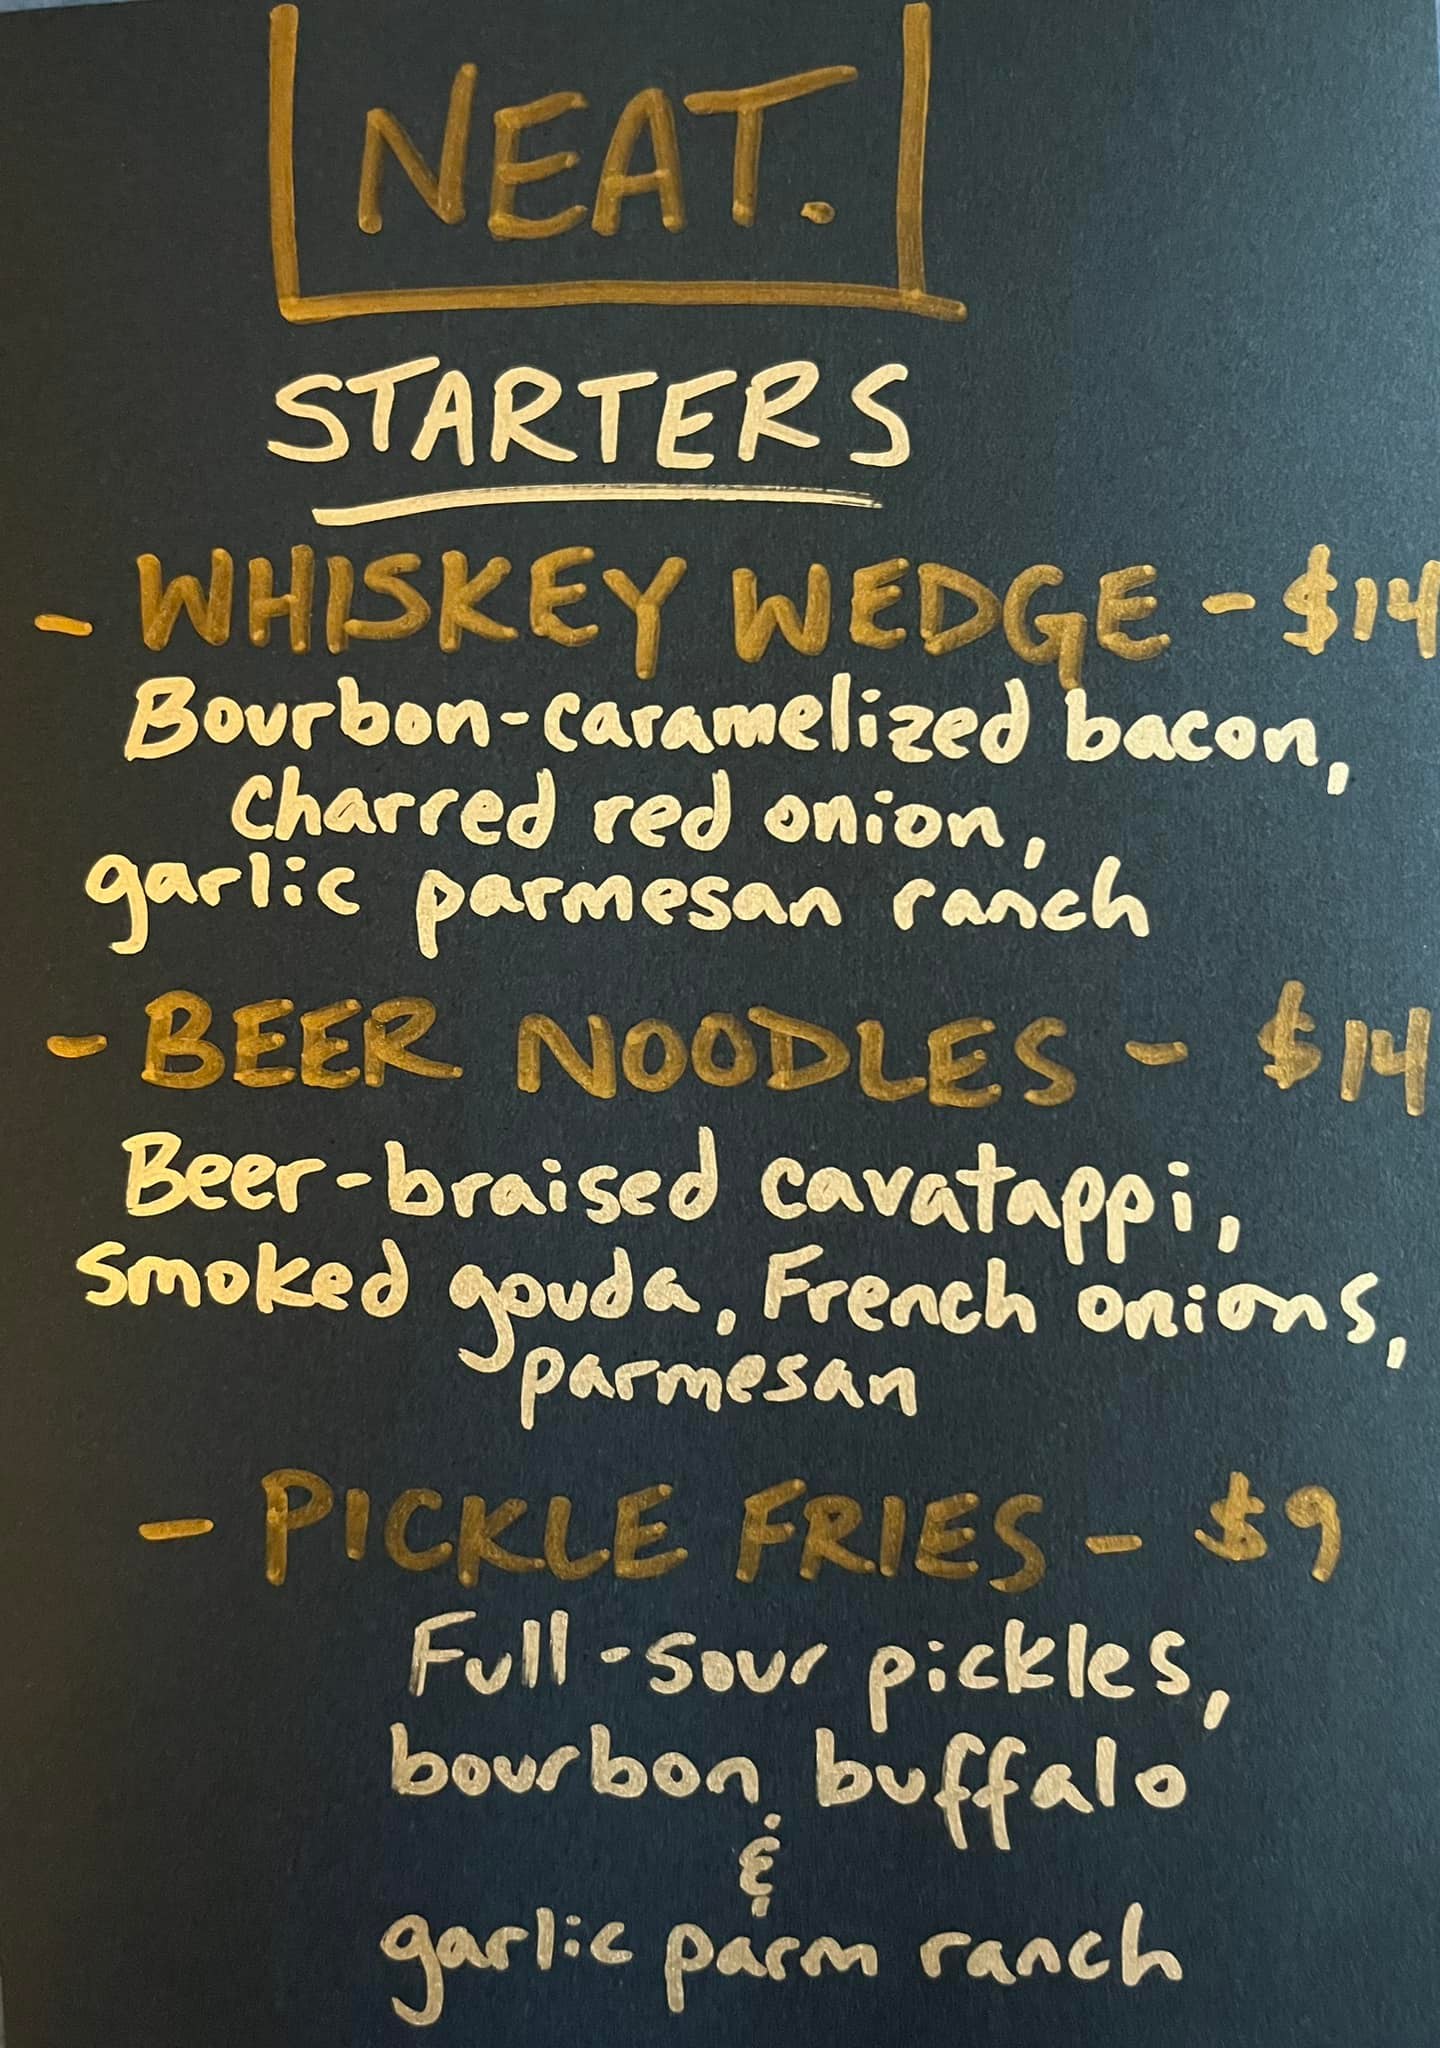 NEAT.
STARTERS
- WHISKEY WEDGE - $14
Bourbon-caramelized bacon,
charred red onion,
garlic parmesan ranch
- BEER NOODLES - $14
Beer-braised cavatappi,
smoked gouda, French onions,
parmesan
- PICKLE FRIES - $9
Full-sour pickles,
bourbon buffalo
&
garlic parm ranch